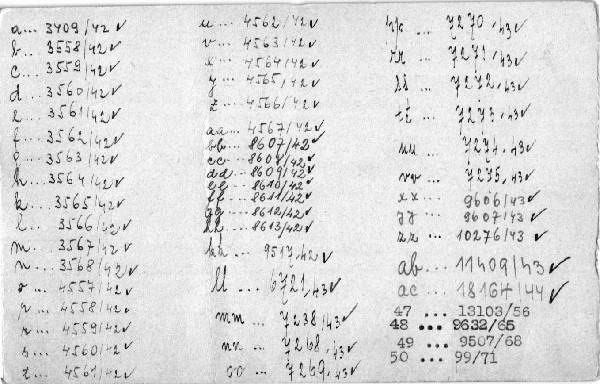 a... 3409/42 ✓
b... 3558/42 ✓
c... 3559/42 ✓
d... 3560/42 ✓
e... 3561/42 ✓
f... 3562/42 ✓
g... 3563/42 ✓
h... 3564/42 ✓
k... 3565/42 ✓
l... 3566/42 ✓
m... 3567/42 ✓
n... 3568/42 ✓
o... 4557/42 ✓
p... 4558/42 ✓
r... 4559/42 ✓
s... 4560/42 ✓
t... 4561/42 ✓
u... 4562/42 ✓
v... 4563/42 ✓
x... 4564/42 ✓
y... 4565/42 ✓
z... 4566/42 ✓
aa... 4567/42 ✓
bb... 8607/42 ✓
cc... 8608/42 ✓
dd... 8609/42 ✓
ee... 8610/42 ✓
ff... 8611/42 ✓
gg... 8612/42 ✓
hh... 8613/42 ✓
kk... 9517/42 ✓
ll... 6721/43 ✓
mm... 7238/43 ✓
nn... 7268/43 ✓
oo... 7269/43 ✓
pp... 7270/43 ✓
rr... 7271/43 ✓
ss... 7272/43 ✓
tt... 7273/43 ✓
uu... 7274/43 ✓
vv... 7275/43 ✓
xx... 9606/43 ✓
yy... 9607/43 ✓
zz... 10276/43 ✓
ab... 11409/43 ✓
ac... 18164/44 ✓
47 ... 13103/56
48 ... 9632/65
49 ... 9507/68
50 ... 99/71